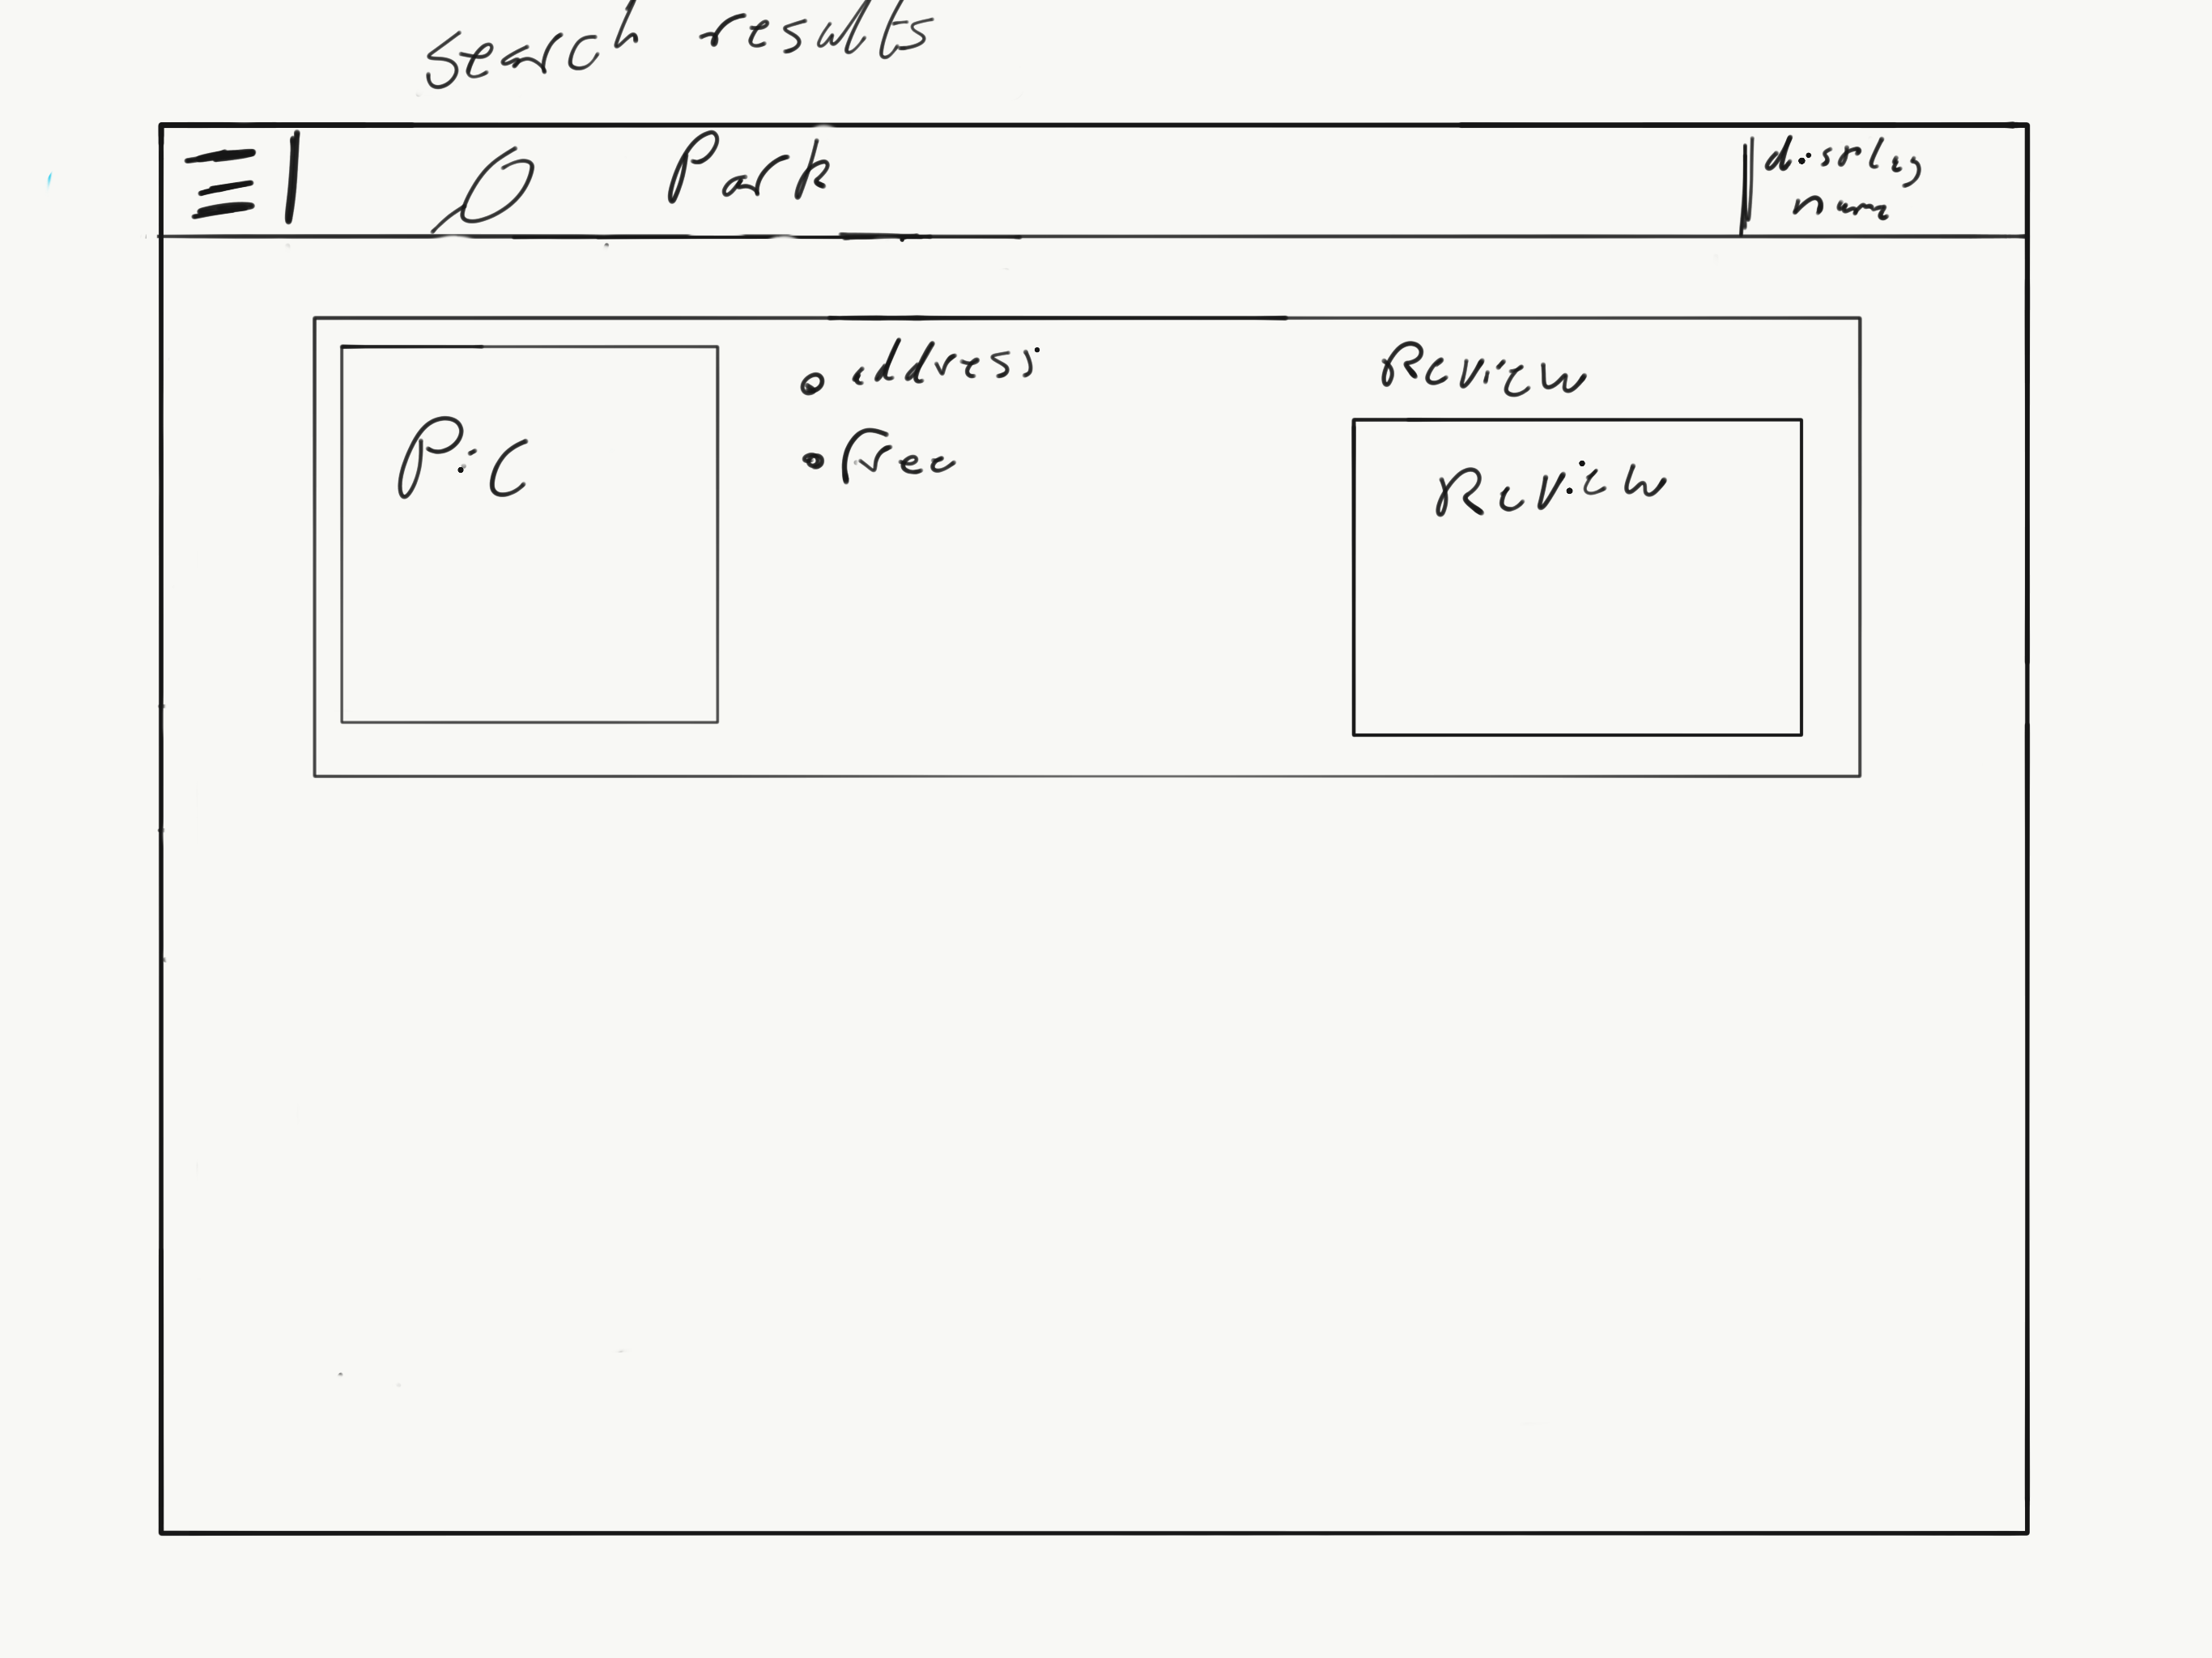 search results
Park
display
name
Pic
address
free
Review
Review